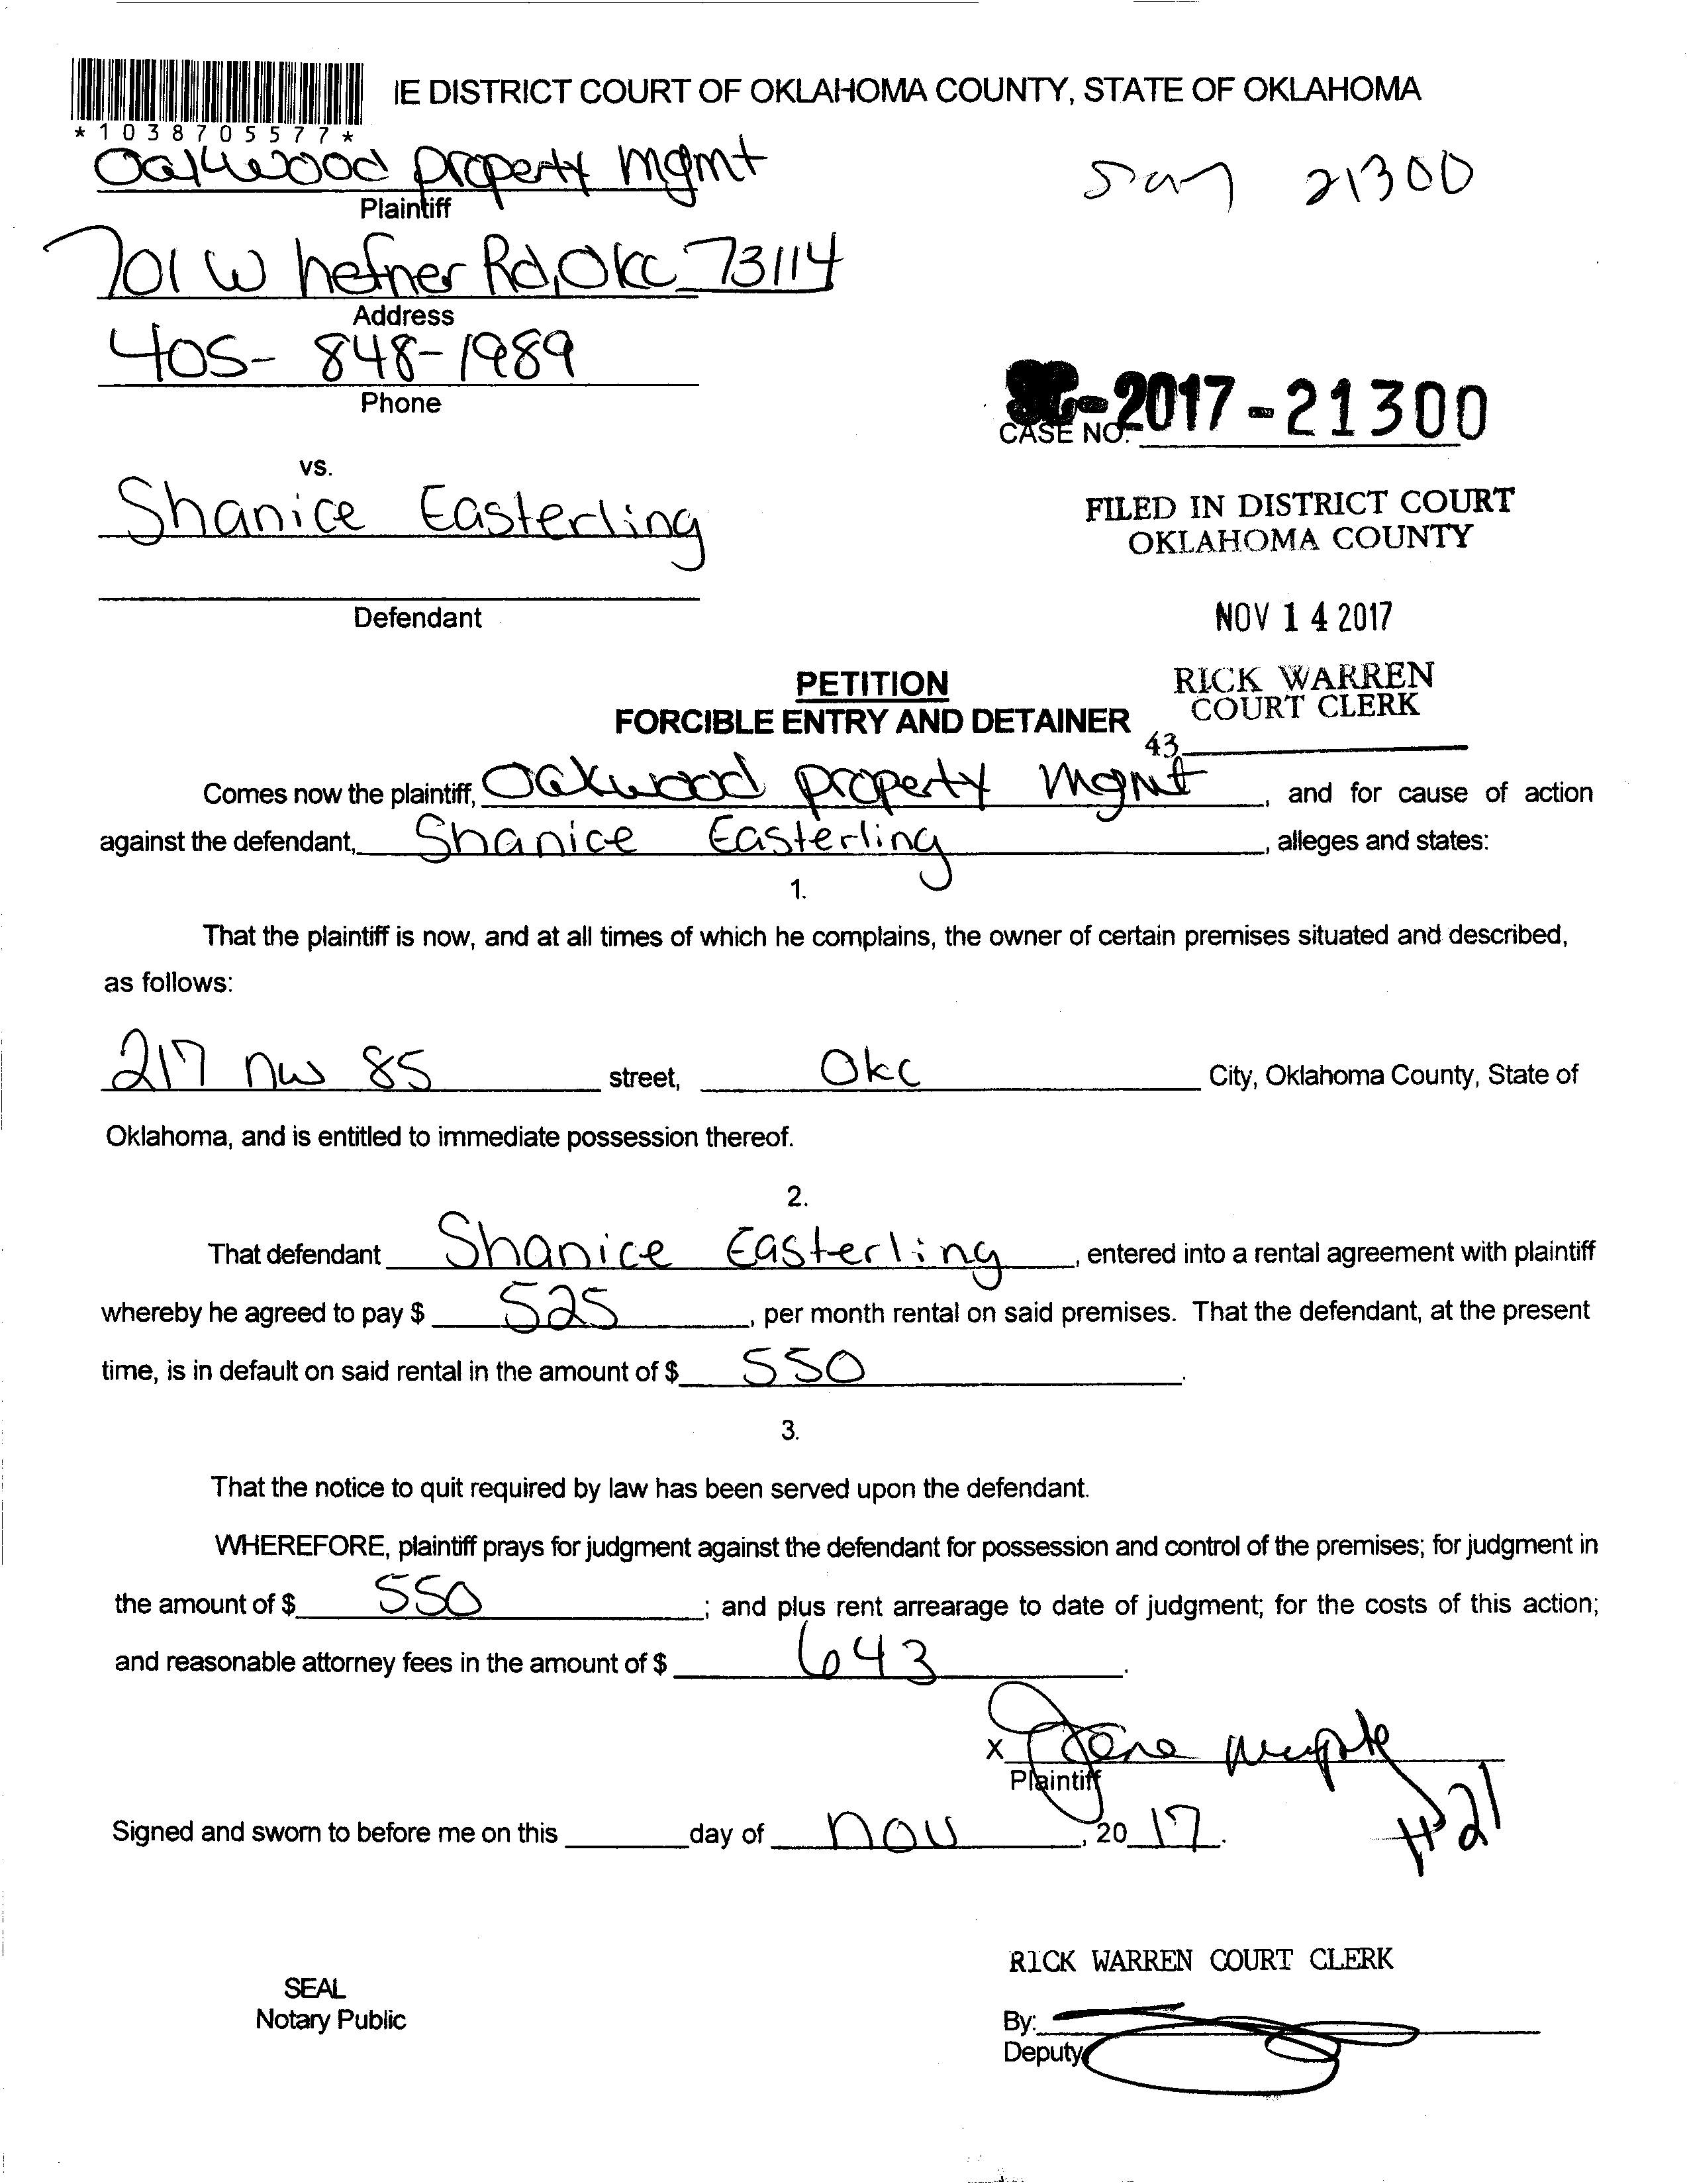 IE DISTRICT COURT OF OKLAHOMA COUNTY, STATE OF OKLAHOMA
*1038705577*
Oakwood property mgmt
21300
Plaintiff
701 W hefner Rd, Okc 73114
Address
405-848-1989
Phone
-2017-21300
CASE NO.
vs.
Shanice Easterling
FILED IN DISTRICT COURT
OKLAHOMA COUNTY
Defendant
NOV 14 2017
PETITION
RICK WARREN
COURT CLERK
FORCIBLE ENTRY AND DETAINER
43
Comes now the plaintiff, Oakwood property Mgmt, and for cause of action
against the defendant, Shanice Easterling, alleges and states:
1.
That the plaintiff is now, and at all times of which he complains, the owner of certain premises situated and described,
as follows:
217 nw 85 street, Okc City, Oklahoma County, State of
Oklahoma, and is entitled to immediate possession thereof.
2.
That defendant Shanice Easterling, entered into a rental agreement with plaintiff
whereby he agreed to pay $ 525, per month rental on said premises. That the defendant, at the present
time, is in default on said rental in the amount of $ 550.
3.
That the notice to quit required by law has been served upon the defendant.
WHEREFORE, plaintiff prays for judgment against the defendant for possession and control of the premises; for judgment in
the amount of $ 550; and plus rent arrearage to date of judgment; for the costs of this action;
and reasonable attorney fees in the amount of $ 643.
X
Plaintiff
Signed and sworn to before me on this day of nov, 2017.
#21
RICK WARREN COURT CLERK
SEAL
Notary Public
By:
Deputy